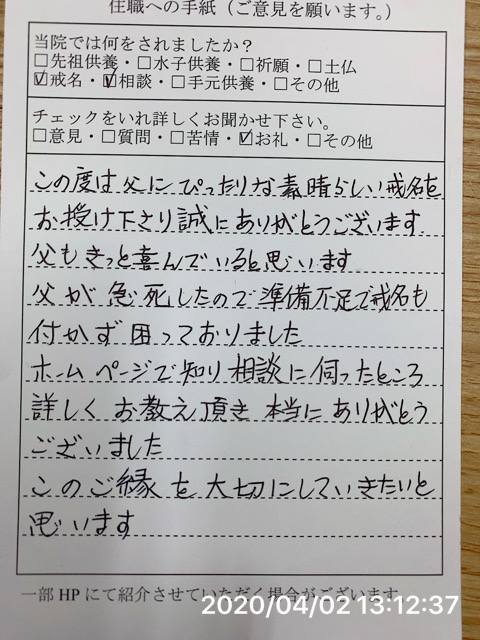 住職への手紙（ご意見を願います。）
当院では何をされましたか？
□先祖供養・□水子供養・□祈願・□土仏
☑戒名・☑相談・□手元供養・□その他
チェックをいれ詳しくお聞かせ下さい。
□意見・□質問・□苦情・☑お礼・□その他
この度は父にぴったりな素晴らしい戒名を
お授け下さり誠にありがとうございます
父もきっと喜んでいると思います
父が急死したので準備不足で戒名も
付かず困っておりました
ホームページで知り相談に伺ったところ
詳しくお教え頂き本当にありがとう
ございました
このご縁を大切にしていきたいと
思います
一部HPにて紹介させていただく場合がございます
2020/04/02 13:12:37